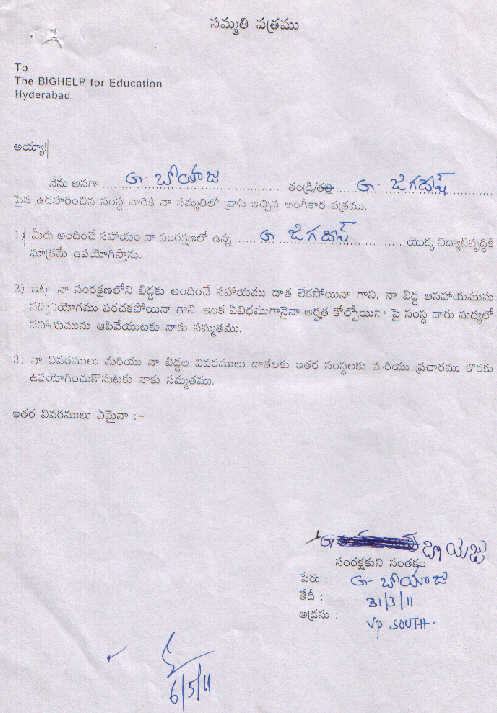 సమ్మతి పత్రము
To
The BIGHELP for Education
Hyderabad.
అయ్యా!
నేను అనగా G. బాయాజి తండ్రి/తల్లి G. జగదీష్
పైన ఉదహరించిన సంస్థ వారికి నా సమ్మతిలో వ్రాసి ఇచ్చిన అంగీకార పత్రము.
1) మీరు అందించే సహాయం నా సంరక్షణలో ఉన్న G. జగదీష్ యొక్క విద్యాభివృద్ధికి
మాత్రమే ఉపయోగిస్తాను.
2) ఇట్లు నా సంరక్షణలోని బిడ్డకు అందించే సహాయము దాత లేకపోయినా గాని, నా బిడ్డ ఆసహాయమును
సద్వినియోగము పరచకపోయినా గాని ఇంక ఏవిధముగానైనా అర్హత కోల్పోయినా పై సంస్థ వారు మధ్యలో
సహాయమును ఆపివేయుటకు నాకు సమ్మతము.
3. నా వివరములు మరియు నా బిడ్డల వివరములు దాతలకు ఇతర సంస్థలకు మరియు ప్రచారము కొరకు
ఉపయోగించుకొనుటకు నాకు సమ్మతము.
ఇతర వివరములు ఏమైనా :-
G.
సంరక్షకుని సంతకం
పేరు G. బాయాజి
తేదీ : 31/3/11
అడ్రసు : VP. SOUTH.
6/5/11